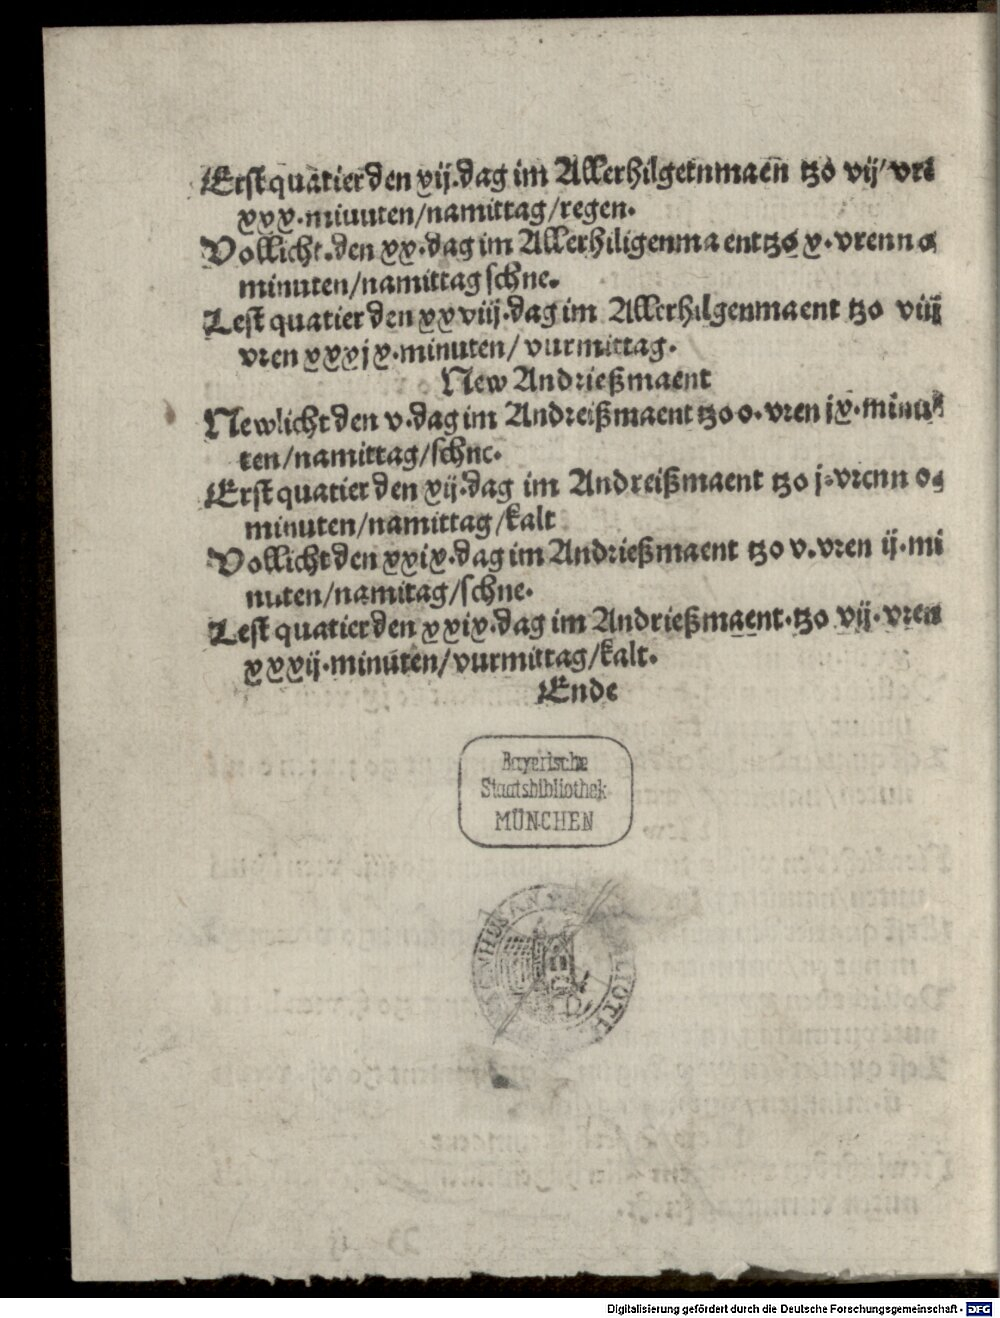 Erst quatier den xij.dag im Allerhilgetnmaen tzo vij/ vri
xxx.miuuten/namittag/regen.
Vollicht.den xx.dag im Allerhiligenmaent tzo x.vrenn o
minuten/namittag schne.
Lest quatier den xxviij.dag im Allerhilgenmaent tzo viij
vren xxxjx.minuten/ vurmittag.
New Andrießmaent
Newlicht den v.dag im Andreißmaent tzo o.vren jx.minu⸗
ten/namittag/schne.
Erst quatier den xij.dag im Andreißmaent tzo j.vrenn o.
minuten/namittag/kalt
Vollicht den xxix.dag im Andrießmaent tzo v.vren ij.mi
nuten/namitag/schne.
Lest quatier den xxix.dag im Andrießmaent.tzo vij.vren
xxxij.minuten/vurmittag/kalt.
Ende
Bayerische
Staatsbibliothek
MÜNCHEN
Digitalisierung gefördert durch die Deutsche Forschungsgemeinschaft - DFG